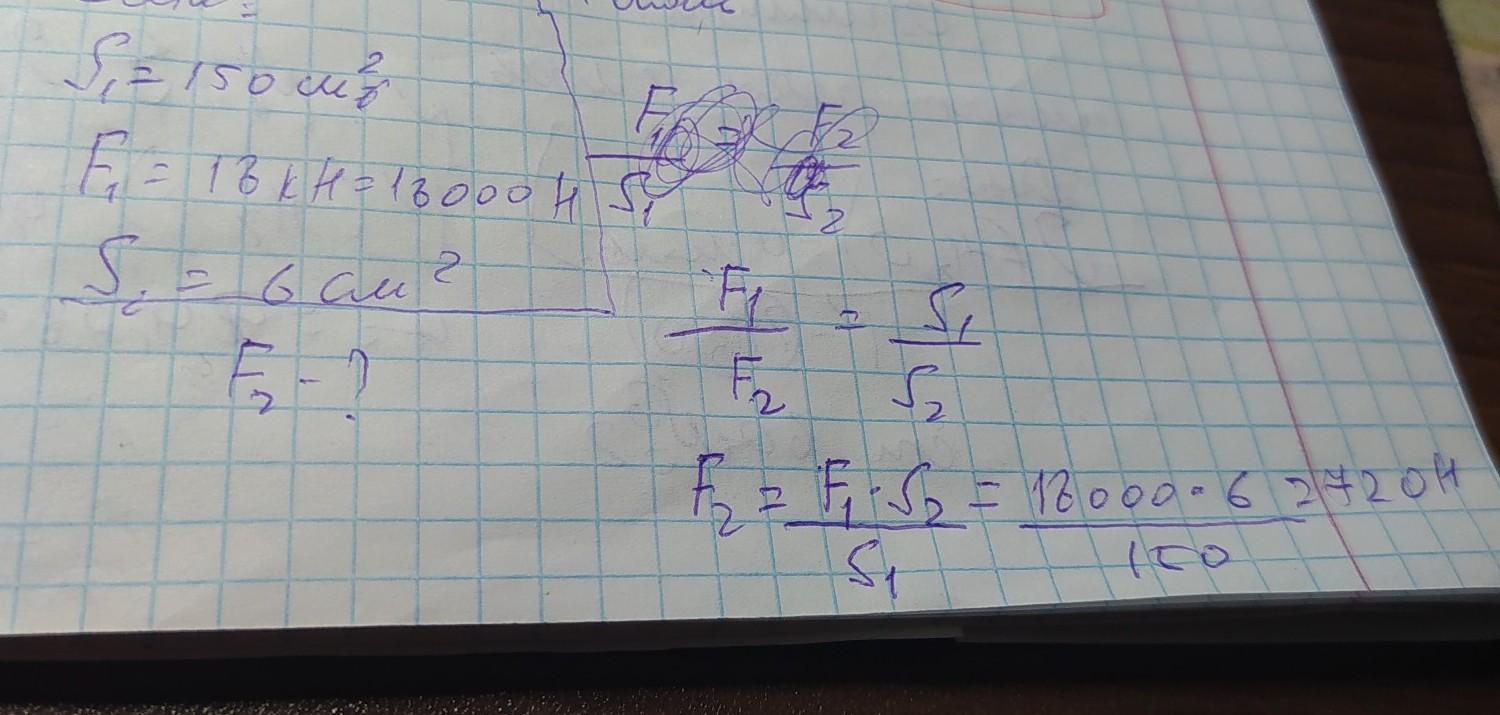 S₁ = 150 см²
F₁ = 18 кН = 18000 Н
S₂ = 6 см²
F₂ - ?
F₁/S₁ = F₂/S₂
F₁/F₂ = S₁/S₂
F₂ = F₁·S₂/S₁ = 18000·6/150 = 720 Н